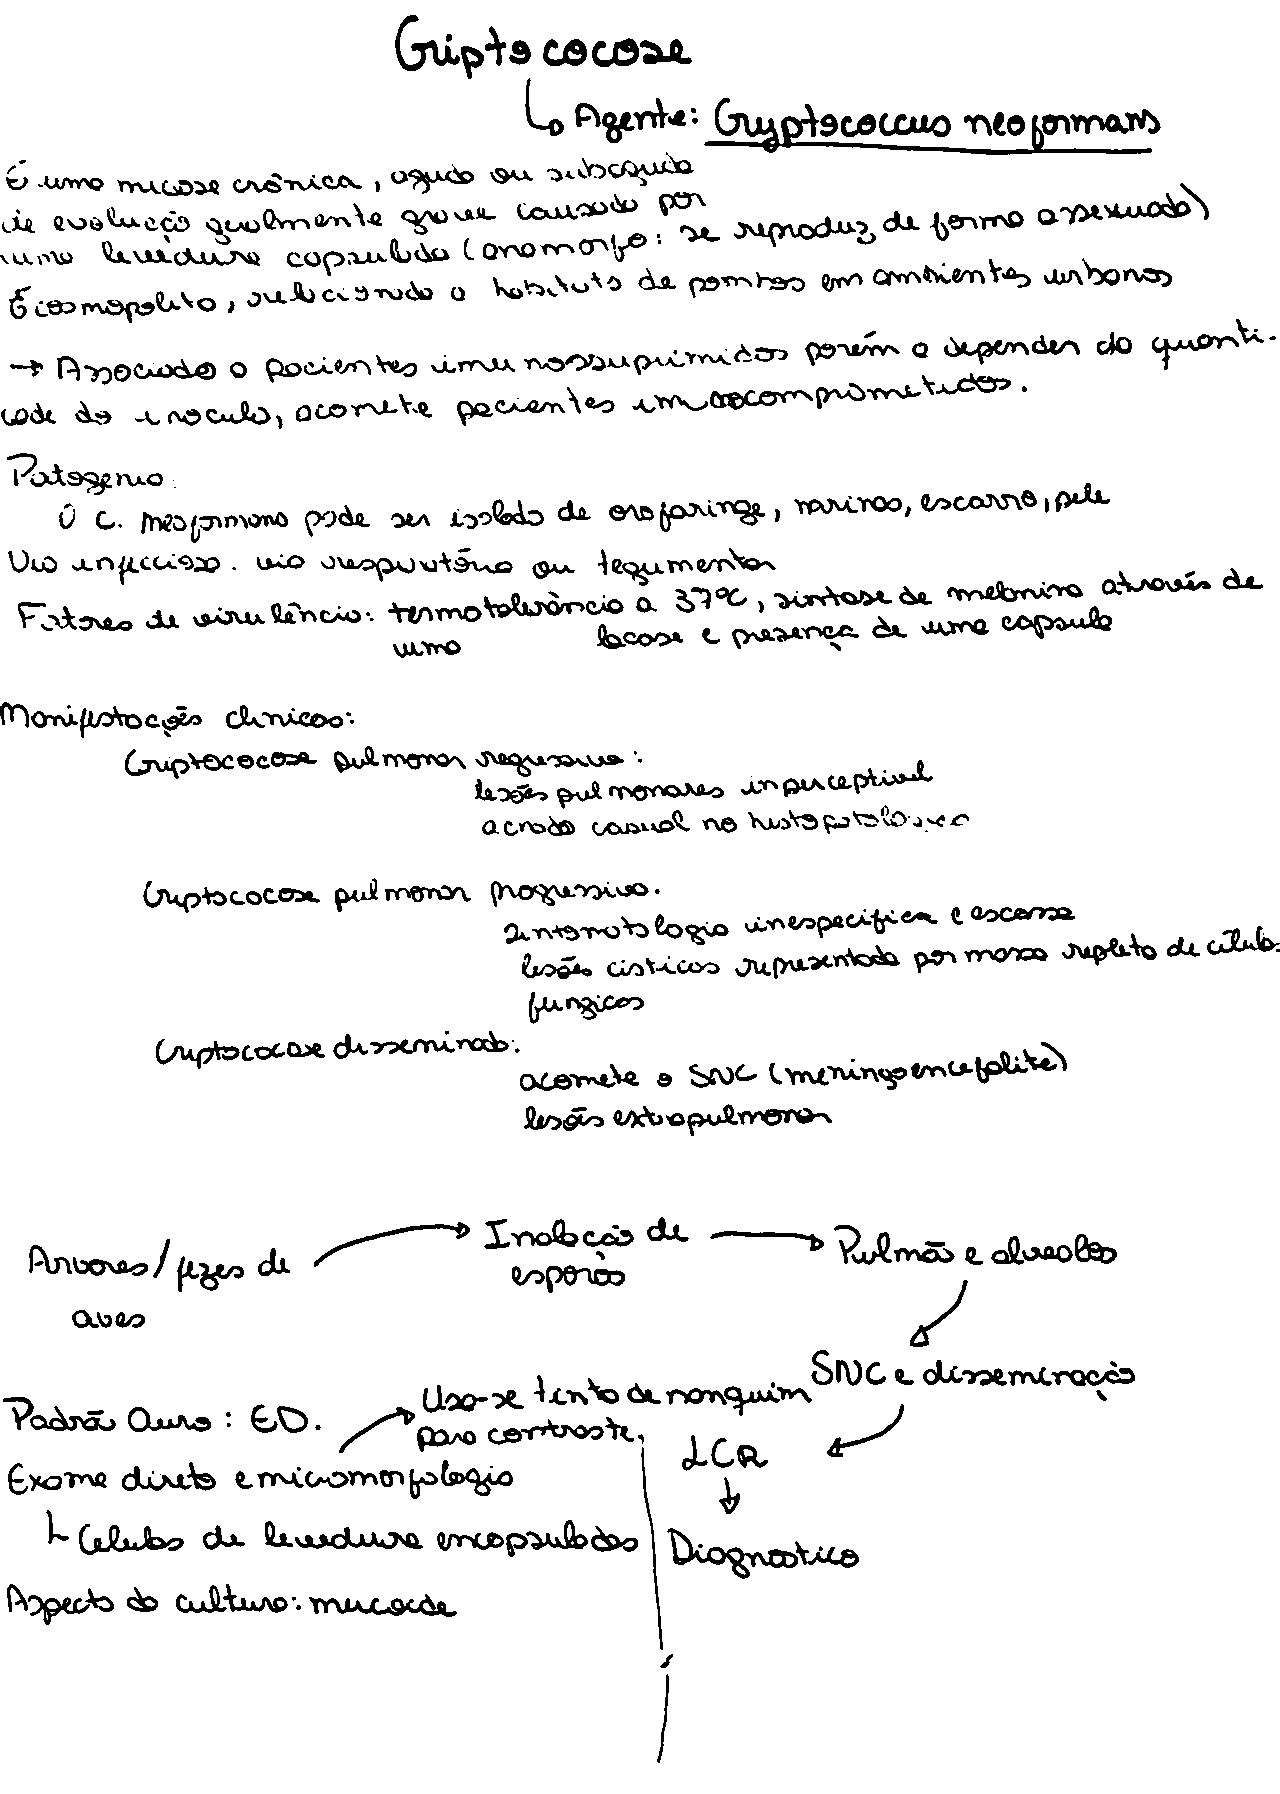 Criptococose
Agente: Cryptococcus neoformans
É uma micose crônica, aguda ou subaguda
de evolução geralmente grave causada por
uma levedura capsulada (anamorfo: se reproduz de forma assexuada)
É cosmopolita, relacionado a habitats de pombos em ambientes urbanos
→ Associado a pacientes imunossuprimidos porém a depender da quanti-
dade do inoculo, acomete pacientes imunocomprometidos.
Patogenia:
O C. neoformans pode ser isolado de orofaringe, narinas, escarro, pele
Via infecciosa: via respiratória ou tegumentar
Fatores de virulência: termotolerância a 37°C, sintase de melanina através de
uma lacase e presença de uma capsula
Manifestações clinicas:
Criptococose pulmonar regressiva:
lesões pulmonares inperceptivel
acrado casual no histopatologico
Criptococose pulmonar progressiva.
sintomatologia inespecifica e escassa
lesões cisticas representada por massa repleta de célula.
fungicas
Criptococose disseminada:
acomete o SNC (meningoencefalite)
lesões extrapulmonar
Arvores/fezes de
aves
Inalação de
esporos
Pulmão e alveolos
SNC e disseminação
LCR
Diagnostico
Padrão Ouro: ED.
Usa-se tinta de nanquim
para contraste.
Exame direto e micromorfologia
Celulas de levedura encapsuladas
Aspecto da cultura: mucoide